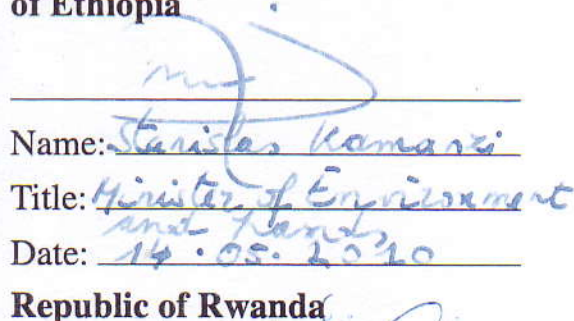 of Ethiopia
Name: Stanislas Kamanzi
Title: Minister of Environment
and Lands
Date: 14.05.2010
Republic of Rwanda